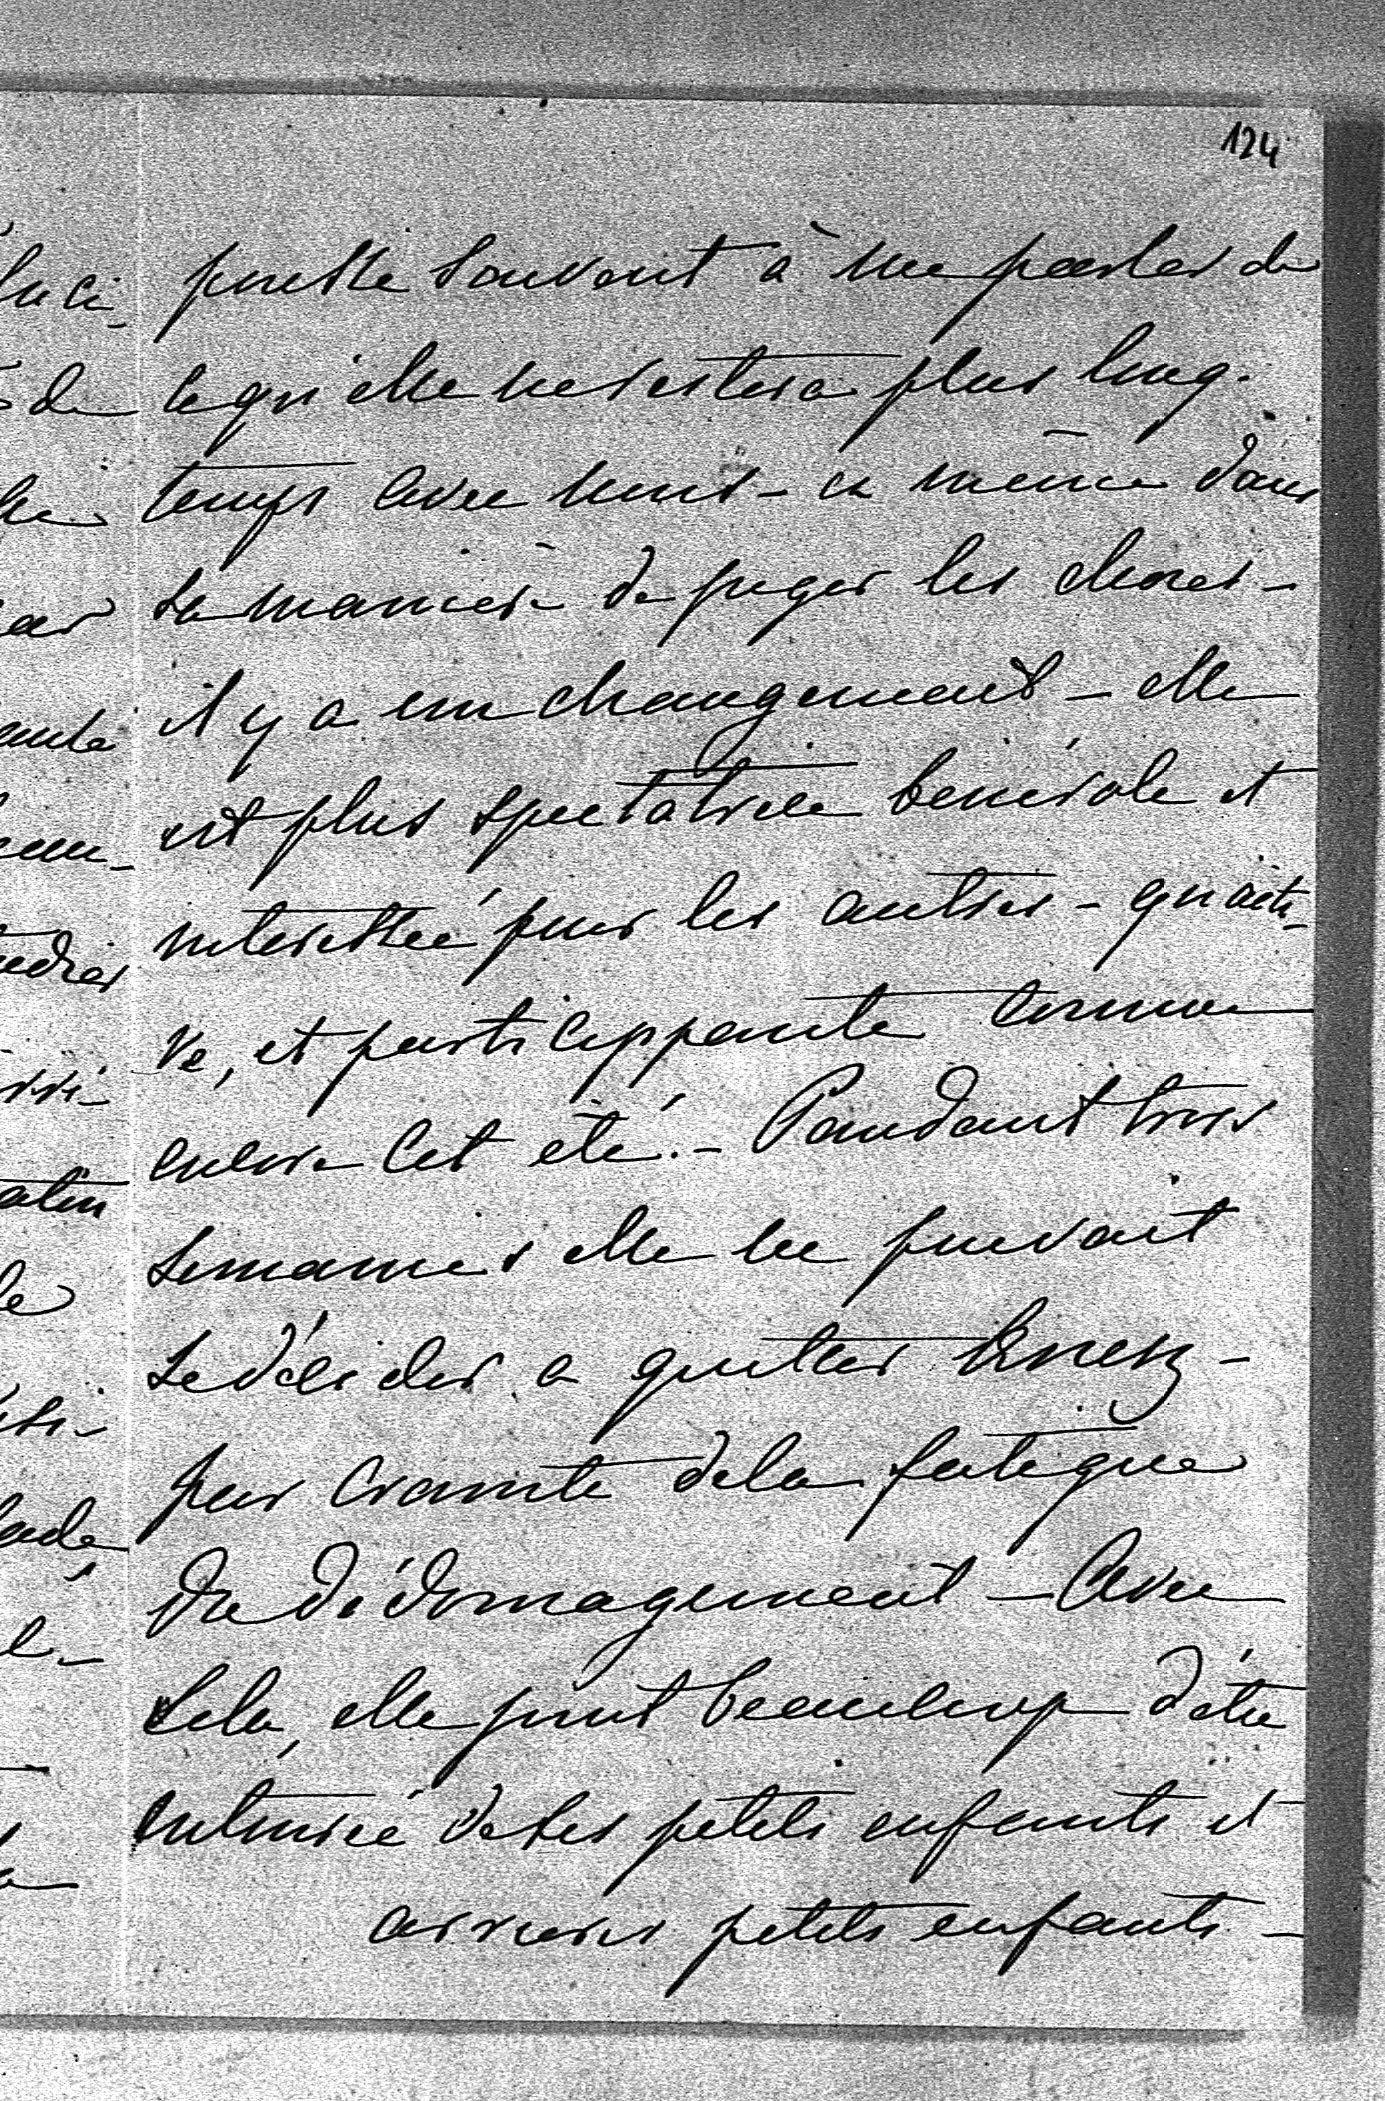 124
pousse souvent à me parler de
ce qu'elle ne restera plus long-
temps avec nous - et même dans
sa manière de juger les choses -
il y a un changement - elle
est plus spectatrice benévole et
interessée pour les autres - qu'acti-
ve, et particippante comme
encore cet été. - Pandant trois
semaines elle ne pouvait
se décider a quitter
par crainte de la fatigue
du dédomagement - Avec
cela, elle jouit beaucoup d'être
entourée de ses petits enfants et
arrieres petits enfants -